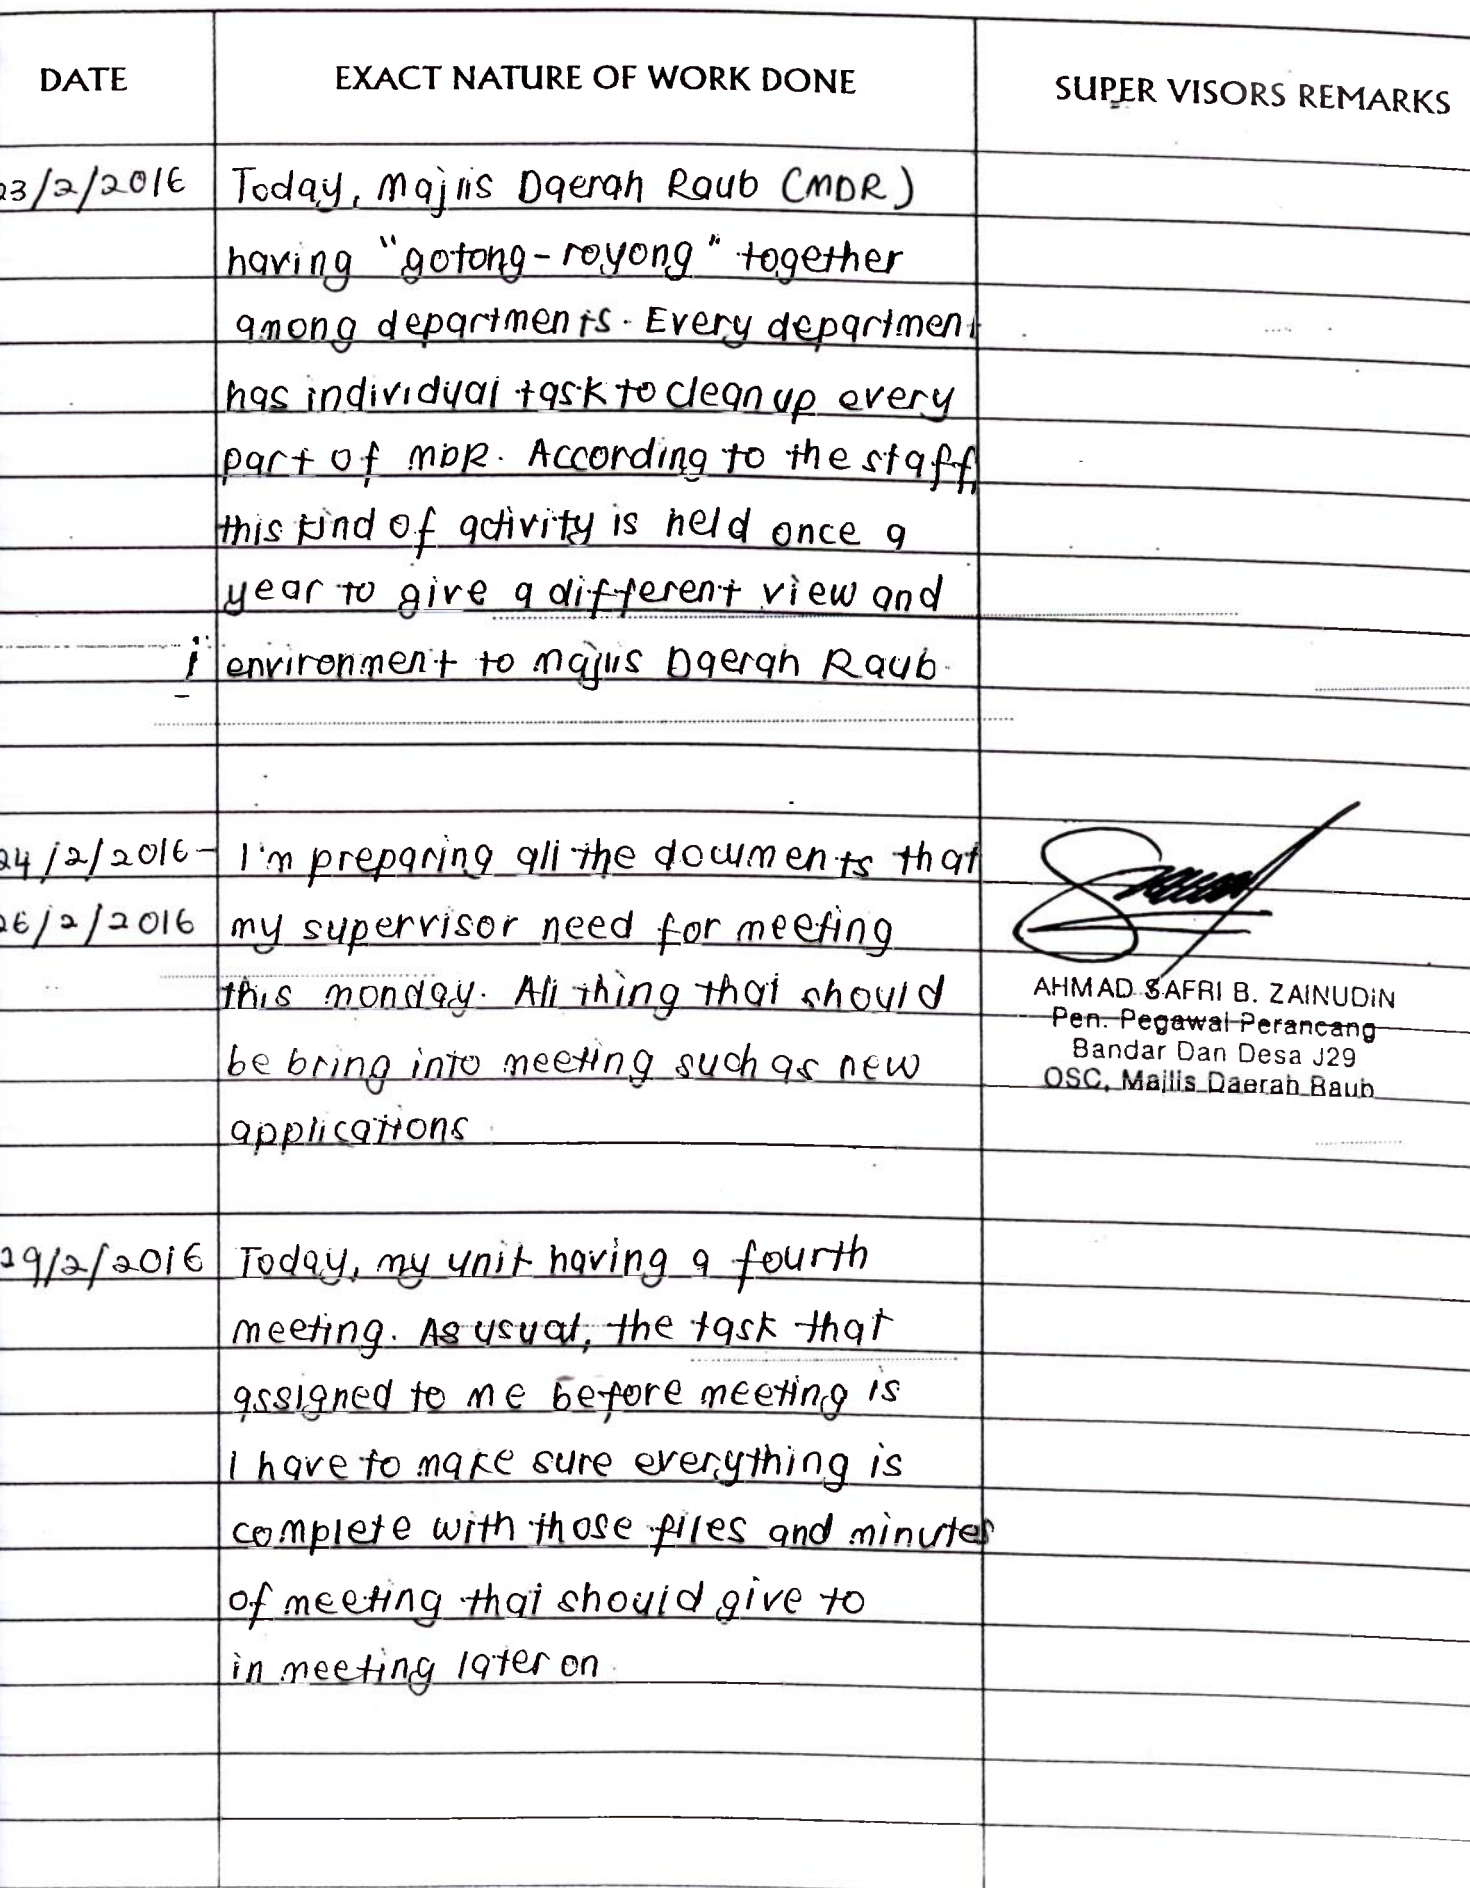 DATE EXACT NATURE OF WORK DONE SUPER VISORS REMARKS
23/2/2016 Today, Majlis Daerah Raub (MDR)
having "gotong-royong" together
among departments. Every department
has individual task to clean up every
part of MDR. According to the staff,
this kind of activity is held once a
year to give a different view and
environment to Majlis Daerah Raub.
24/2/2016 - I'm preparing all the documents that
26/2/2016 my supervisor need for meeting
this monday. All thing that should
be bring into meeting such as new
applications
AHMAD SAFRI B. ZAINUDIN
Pen. Pegawai Perancang
Bandar Dan Desa J29
OSC, Majlis Daerah Raub
29/2/2016 Today, my unit having a fourth
meeting. As usual, the task that
assigned to me before meeting is
I have to make sure everything is
complete with those files and minutes
of meeting that should give to
in meeting later on.